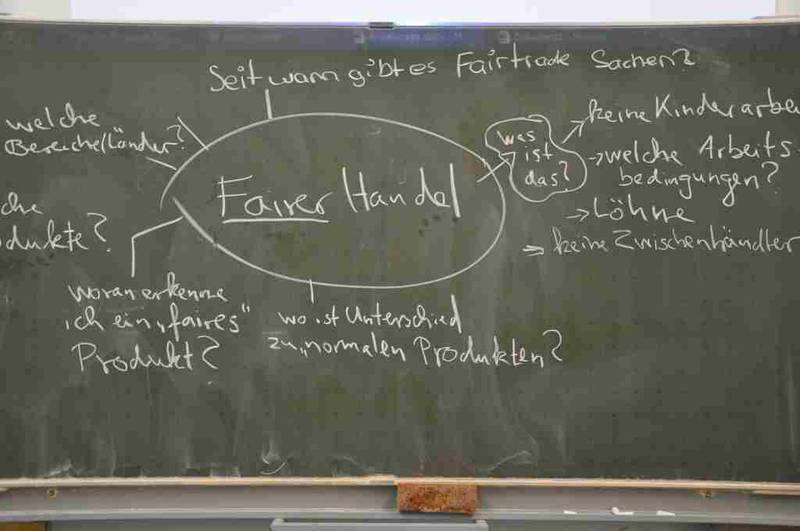 Seit wann gibt es Fairtrade Sachen?
welche
Bereiche/Länder?
che
dukte?
Fairer Handel
was
ist
das?
keine Kinderarbe
welche Arbeits-
bedingungen?
Löhne
keine Zwischenhändler
woran erkenne
ich ein „faires"
Produkt?
wo ist Unterschied
zu „normalen Produkten?